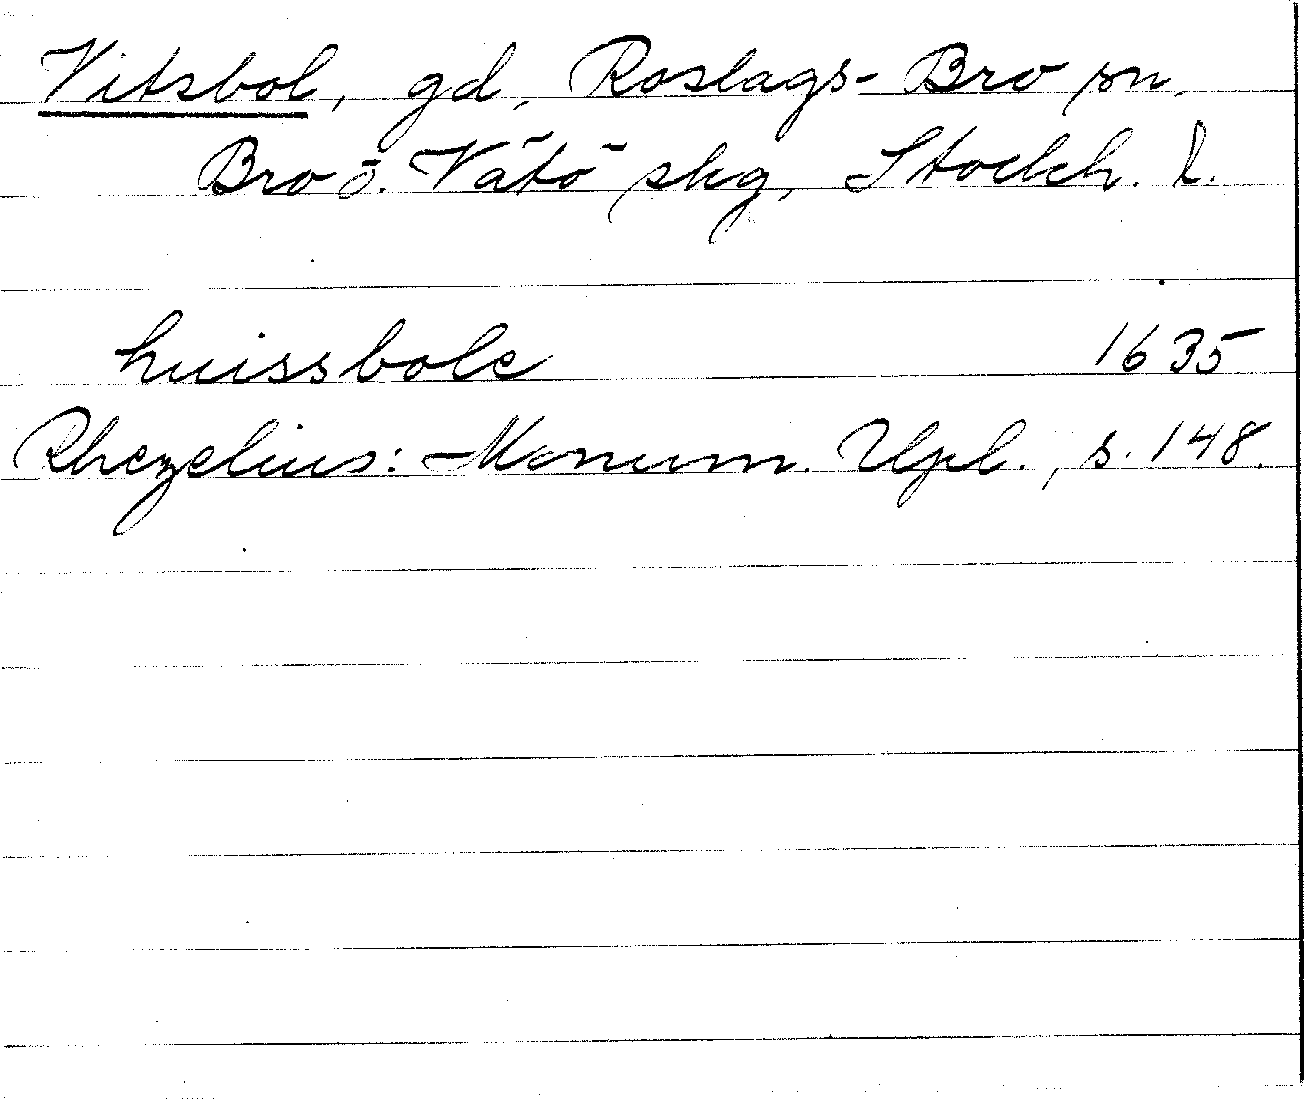 Vitsbol, gd, Roslags-Bro sn,
Bro o. Vätö skg, Stockh. l.
huissbole 1635
Rhezelius: Monum. Upl., s. 148.